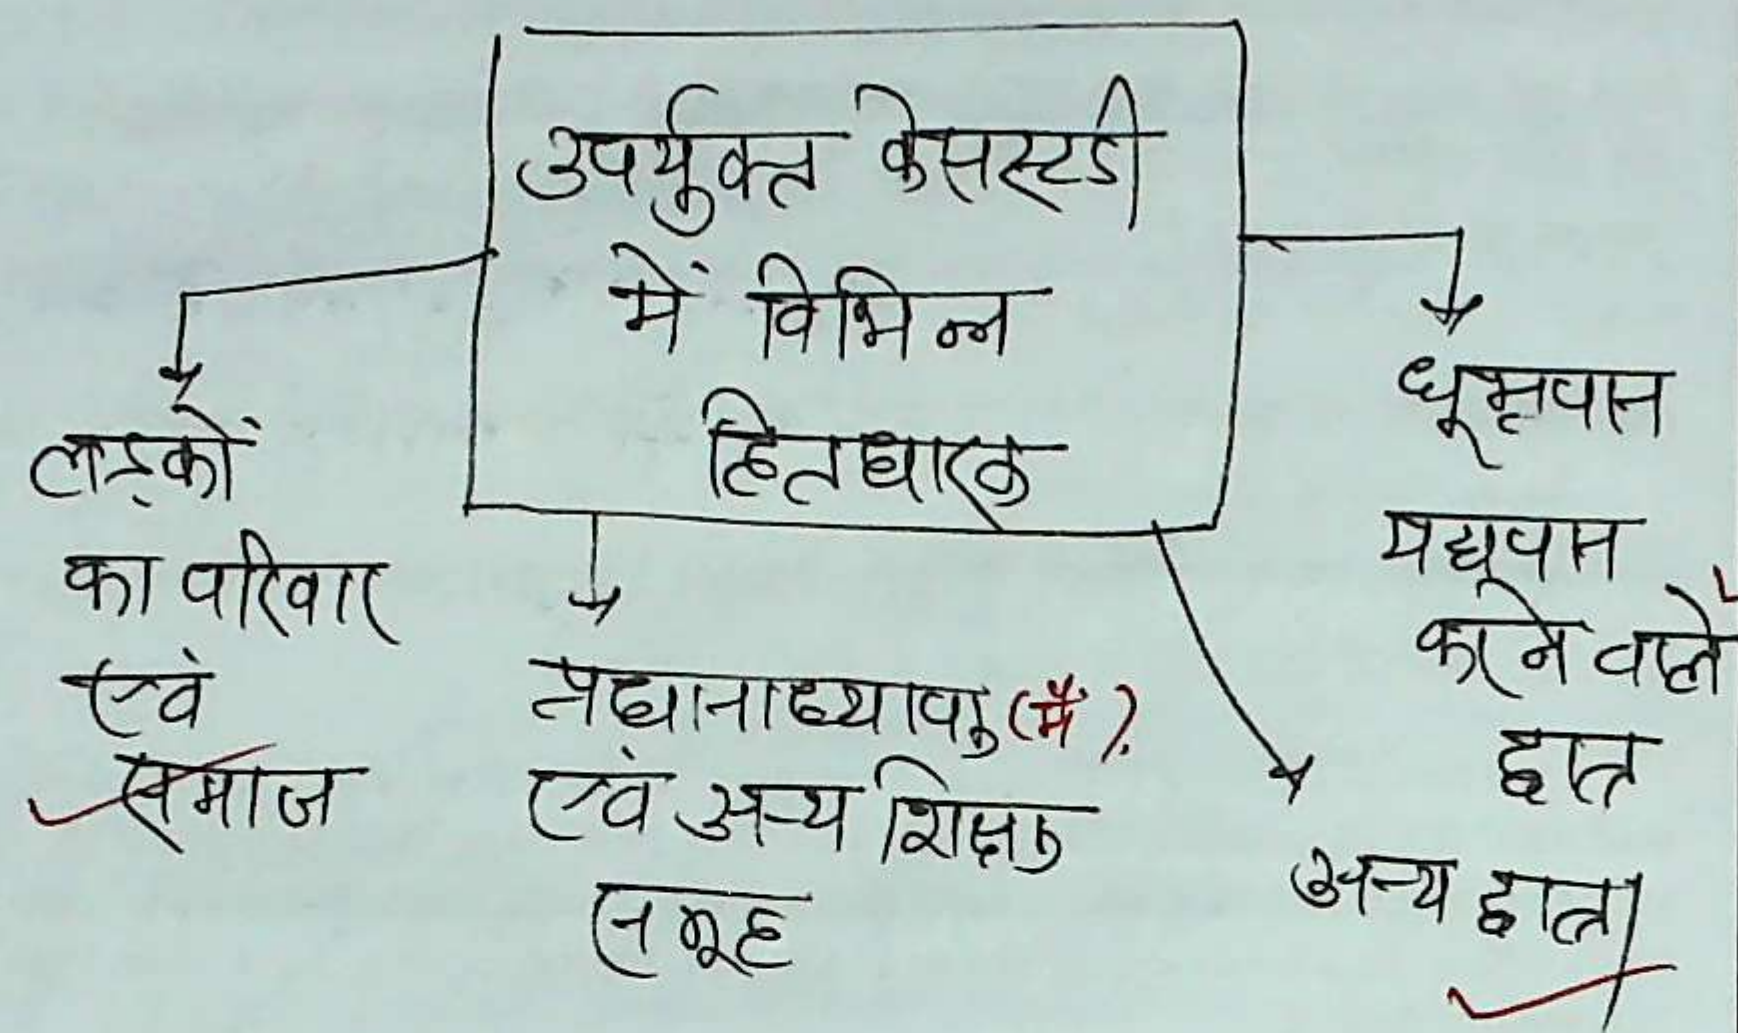 उपर्युक्त केसस्टडी
में विभिन्न
हितधारक
लड़कों
का परिवार
एवं
समाज
प्रधानाध्यापक (मैं)
एवं अन्य शिक्षक
समूह
अन्य छात्र
धूम्रपान
मद्यपान
करने वाले
छात्र